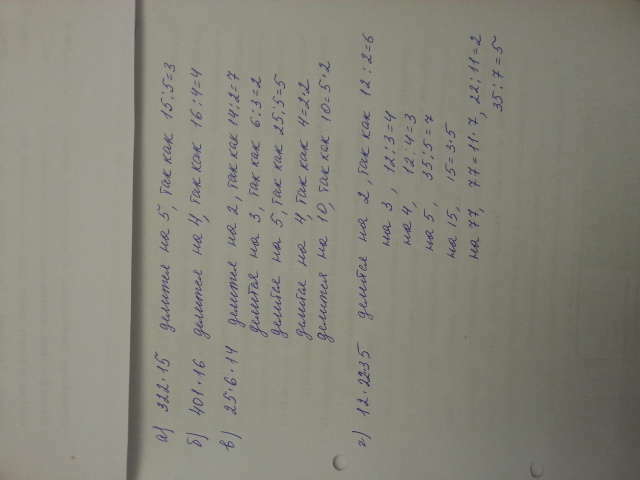 а) 322·15 делится на 5, так как 15:5=3
б) 401·16 делится на 4, так как 16:4=4
в) 25·6·14 делится на 2, так как 14:2=7
делится на 3, так как 6:3=2
делится на 5, так как 25:5=5
делится на 4, так как 4=2·2
делится на 10, так как 10=5·2
г) 12·22·35 делится на 2, так как 12:2=6
на 3, 12:3=4
на 4, 12:4=3
на 5, 35:5=7
на 15, 15=3·5
на 77, 77=11·7, 22:11=2
35:7=5